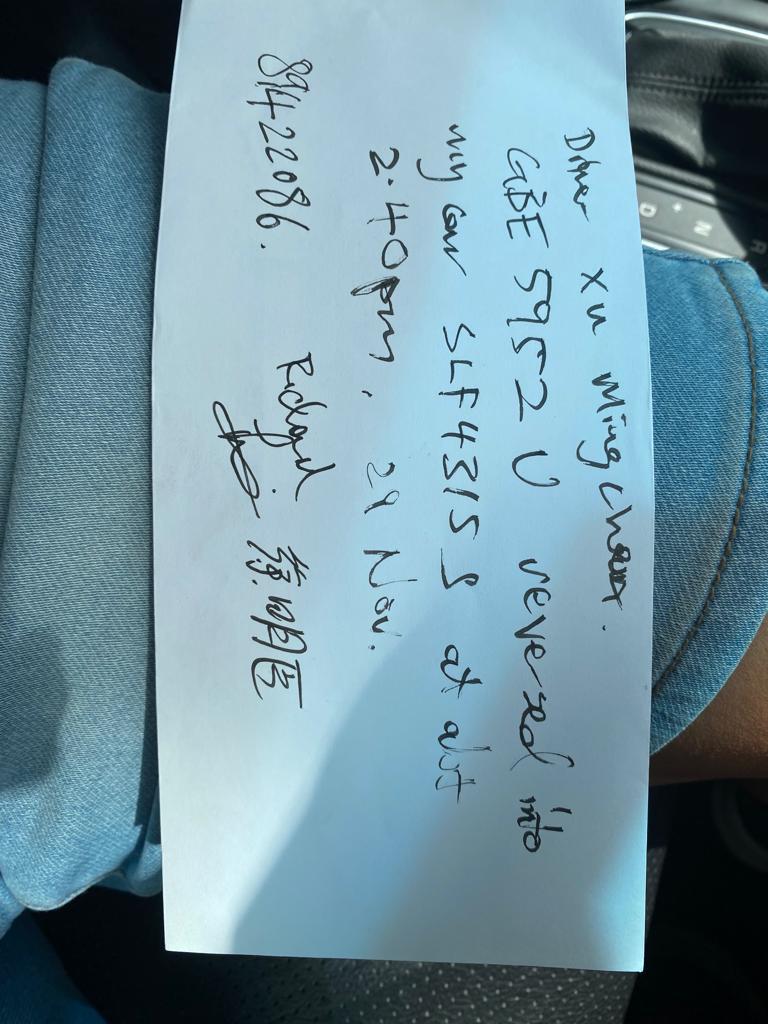 Driver Xu Mingchen.
GBE 5952 U reversed into
my car SLF4315S at abt
2.40pm, 29 Nov.
89422086.
N
+
D
R